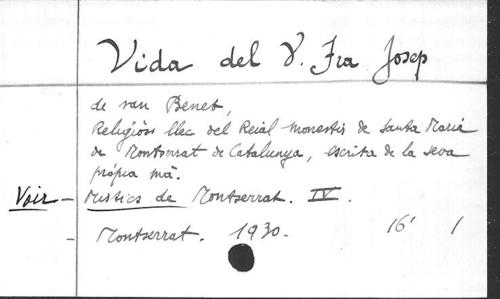 Vida del V. Fra Josep
de san Benet,
Religiòs llec del Reial monestir de Santa Maria
de Montserrat de Catalunya, escrita de la seva
pròpia mà.
Voir - Mistics de Montserrat. IV.
- Montserrat. 1930. 16° 1